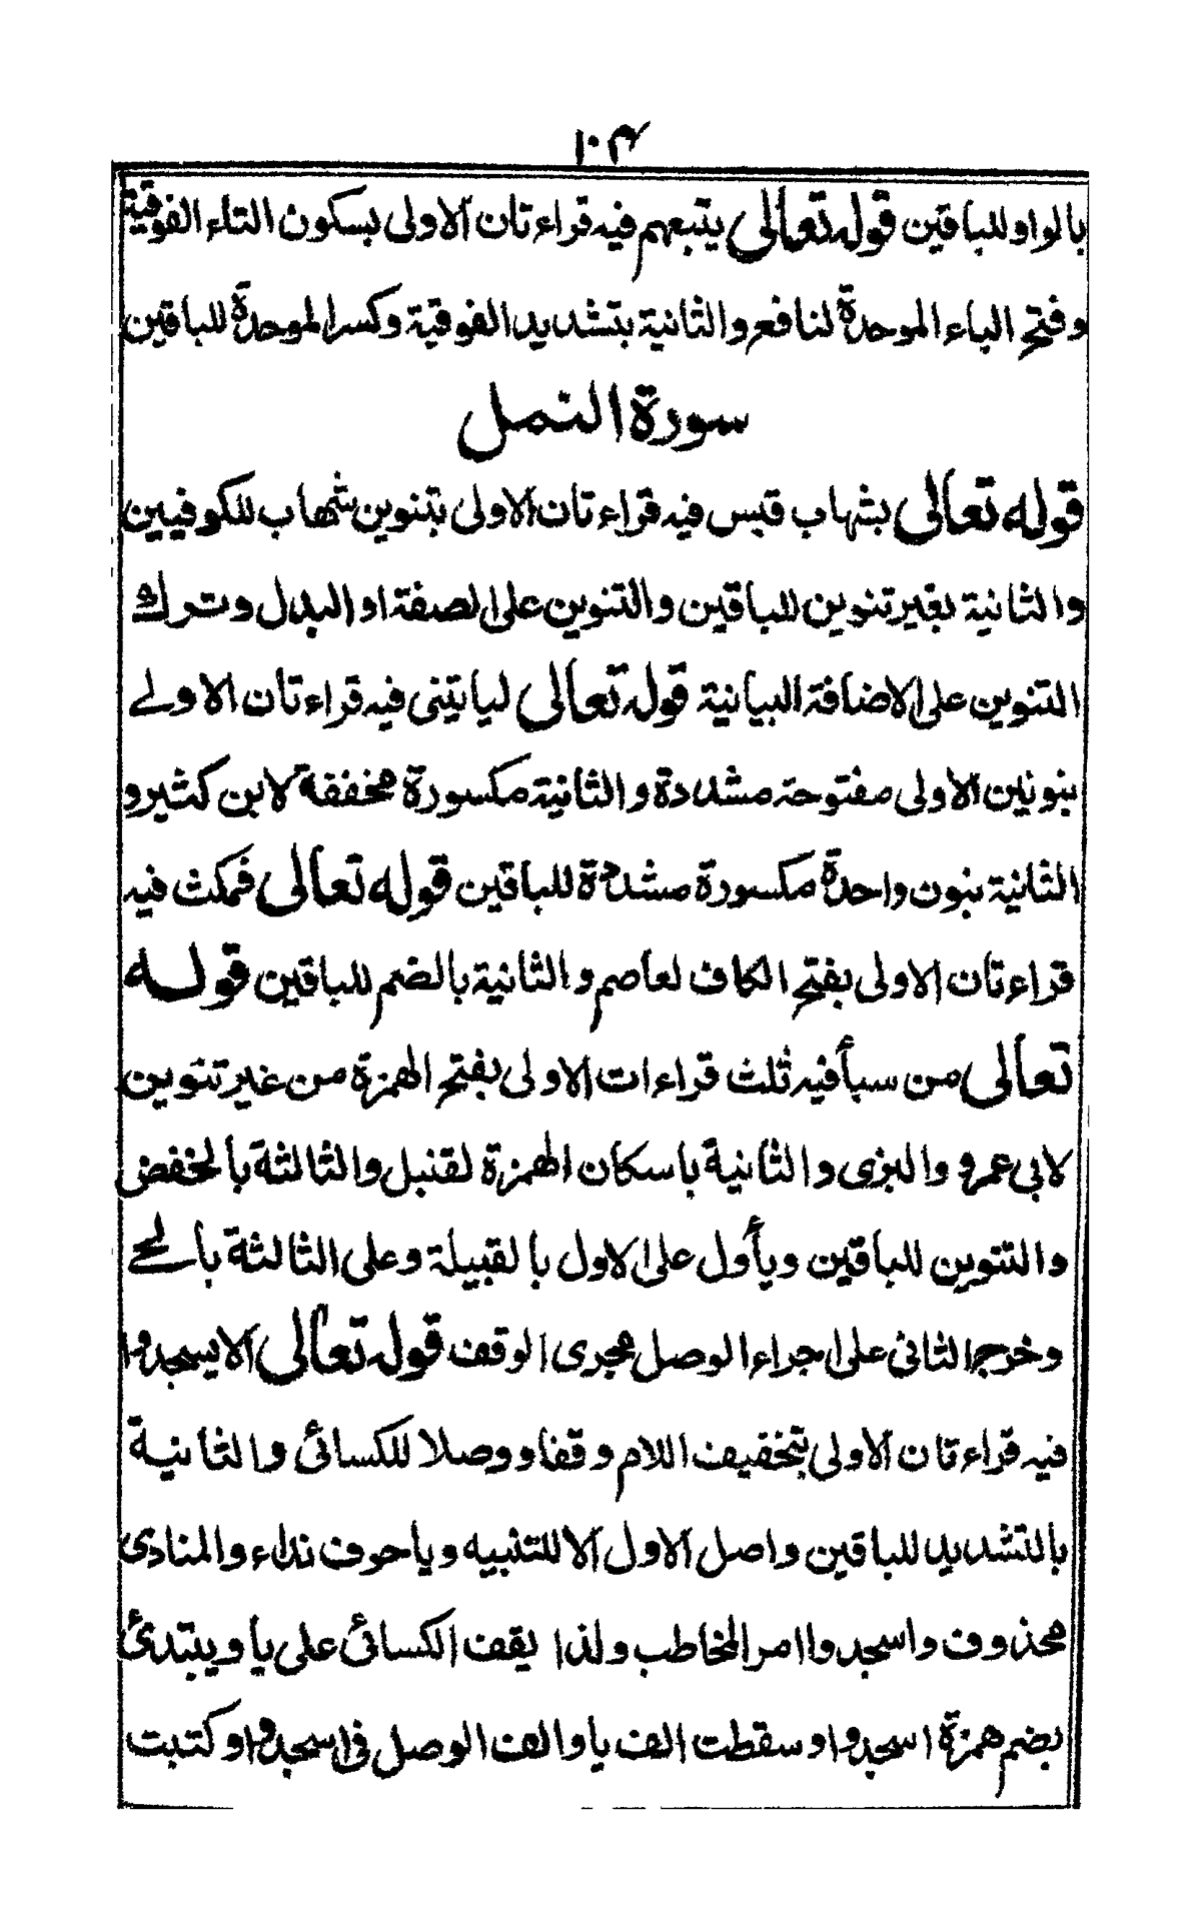 ١٠٣
بالواو للباقين قوله تعالى يتبعهم فيه قراءتان الاولى بسكون التاء الفوقية
وفتح الباء الموحدة لنافع والثانية بتشديد الفوقية وكسر الموحدة للباقين
سورة النمل
قوله تعالى بشهاب قبس فيه قراءتان الاولى بتنوين شهاب للكوفيين
والثانية بغير تنوين للباقين والتنوين على الصفة او البدل وترك
التنوين على الاضافة البيانية قوله تعالى ليأتيني فيه قراءتان الاولى
بنونين الاولى مفتوحة مشددة والثانية مكسورة مخففة لابن كثير و
الثانية بنون واحدة مكسورة مشددة للباقين قوله تعالى فمكث فيه
قراءتان الاولى بفتح الكاف لعاصم والثانية بالضم للباقين قوله
تعالى من سبأ فيه ثلث قراءات الاولى بفتح الهمزة من غير تنوين
لابي عمرو والبزى والثانية باسكان الهمزة لقنبل والثالثة بالخفض
والتنوين للباقين ويأول على الاول بالقبيلة وعلى الثالثة بالحى
وخرج الثانى على اجراء الوصل مجرى الوقف قوله تعالى الا يسجدوا
فيه قراءتان الاولى بتخفيف اللام وقفا ووصلا للكسائى والثانية
بالتشديد للباقين واصل الاول الا للتنبيه ويا حرف نداء والمنادى
محذوف واسجدوا امر المخاطب ولذا يقف الكسائى على يا ويبتدئ
بضم همزة اسجدوا وسقطت الف يا والف الوصل فى اسجدوا وكتبت